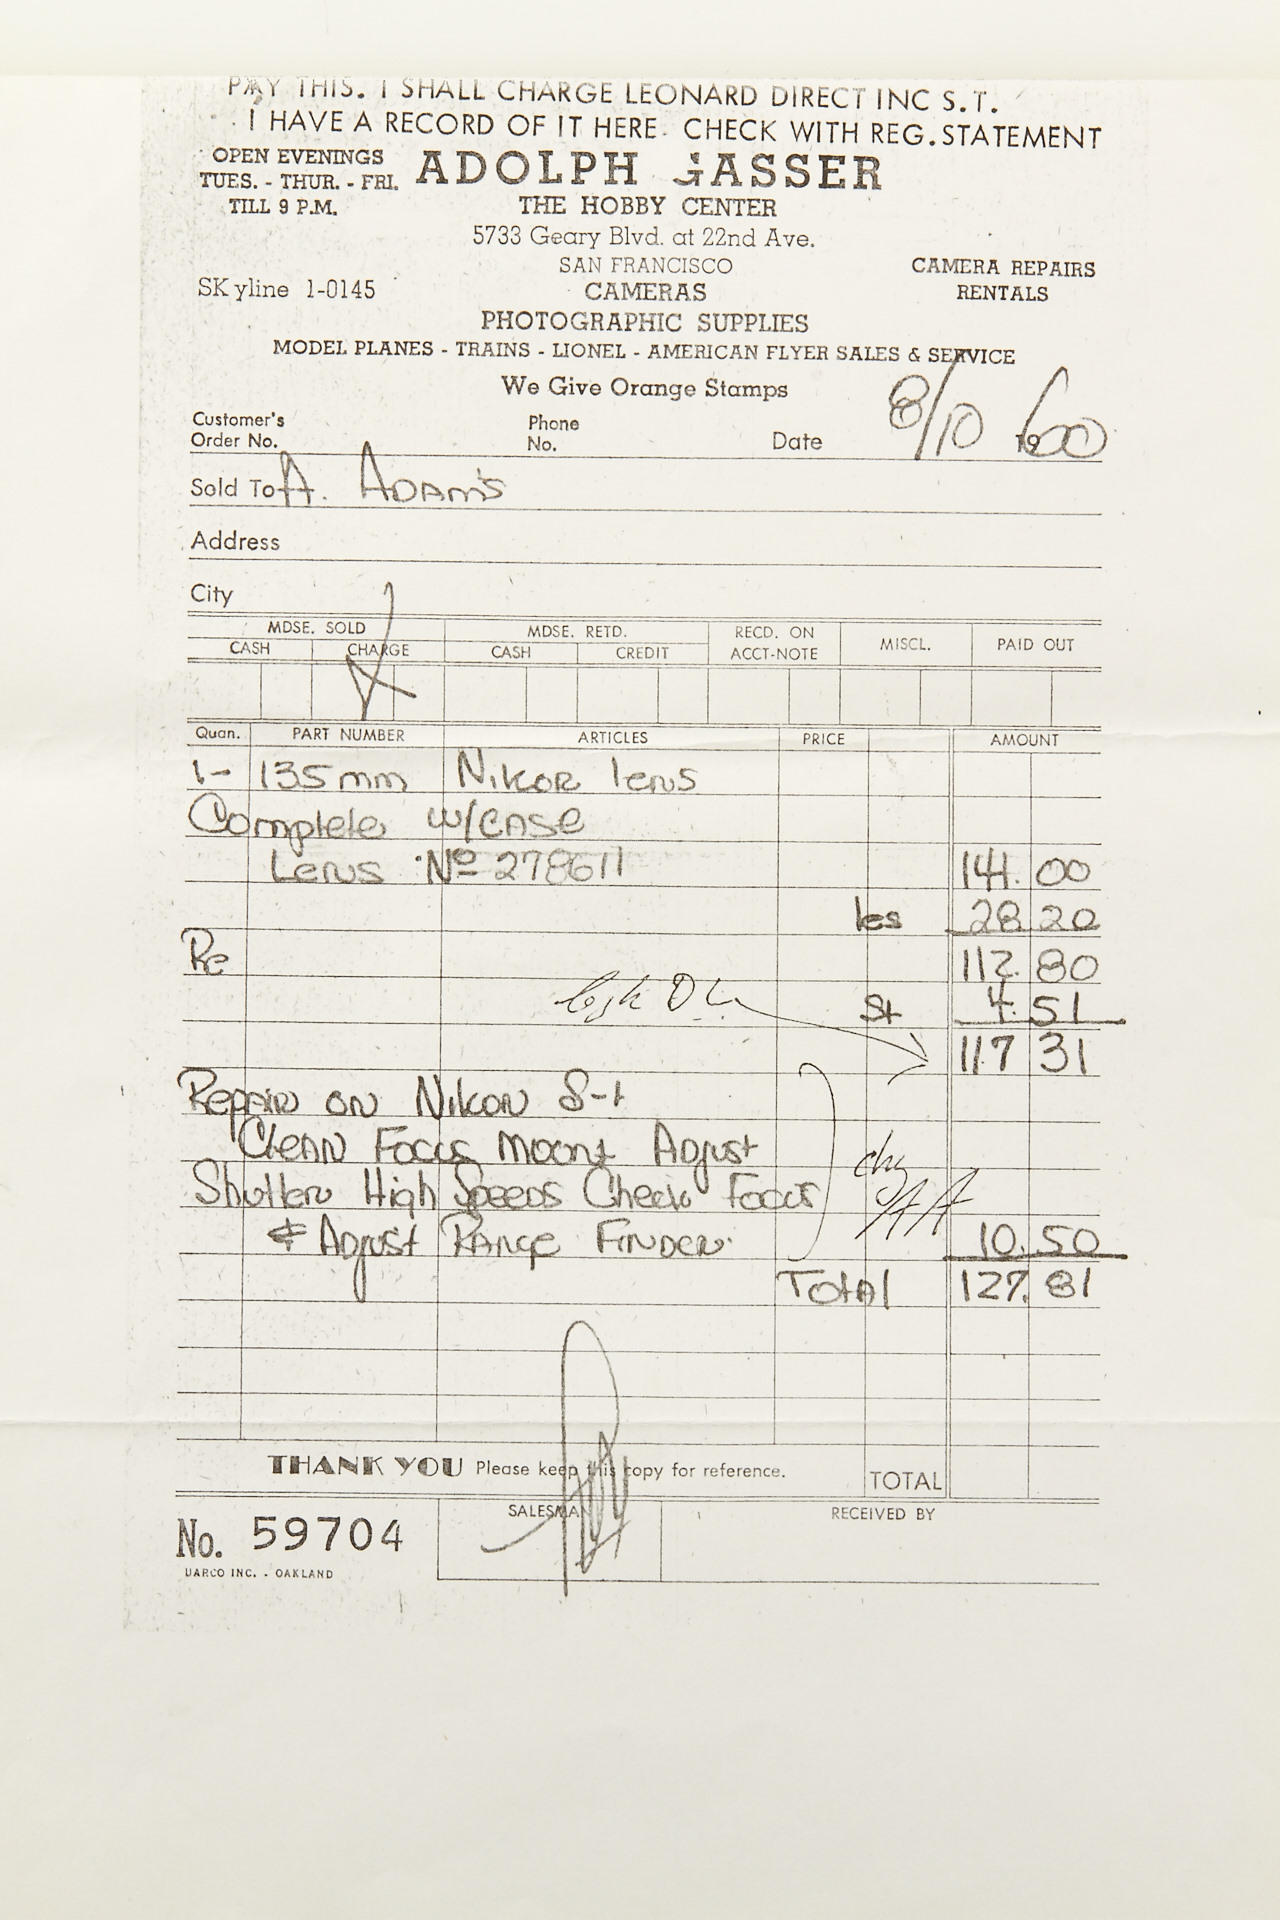 PAY THIS. I SHALL CHARGE LEONARD DIRECT INC S.T.
I HAVE A RECORD OF IT HERE. CHECK WITH REG. STATEMENT
OPEN EVENINGS
TUES. - THUR. - FRI.
TILL 9 P.M.
ADOLPH GASSER
THE HOBBY CENTER
5733 Geary Blvd. at 22nd Ave.
SAN FRANCISCO
SKyline 1-0145
CAMERAS
CAMERA REPAIRS
RENTALS
PHOTOGRAPHIC SUPPLIES
MODEL PLANES - TRAINS - LIONEL - AMERICAN FLYER SALES & SERVICE
We Give Orange Stamps
Customer's
Order No.
Phone
No.
Date 8/10 1960
Sold To A. Adams
Address
City
MDSE. SOLD MDSE. RETD. RECD. ON
ACCT-NOTE MISCL. PAID OUT
CASH CHARGE CASH CREDIT
Quan. PART NUMBER ARTICLES PRICE AMOUNT
1- 135mm Nikor lens
Complete w/case
Lens No 278611 141.00
les 28 20
Re 112.80
St 4.51
117 31
Repair on Nikon S-1
Clean Focus Mount Adjust
Shutter High Speeds Check Focus
chg AA
& Adjust Range Finder. 10.50
Total 127.81
THANK YOU Please keep this copy for reference. TOTAL
SALESMAN RECEIVED BY
No. 59704
UARCO INC. - OAKLAND